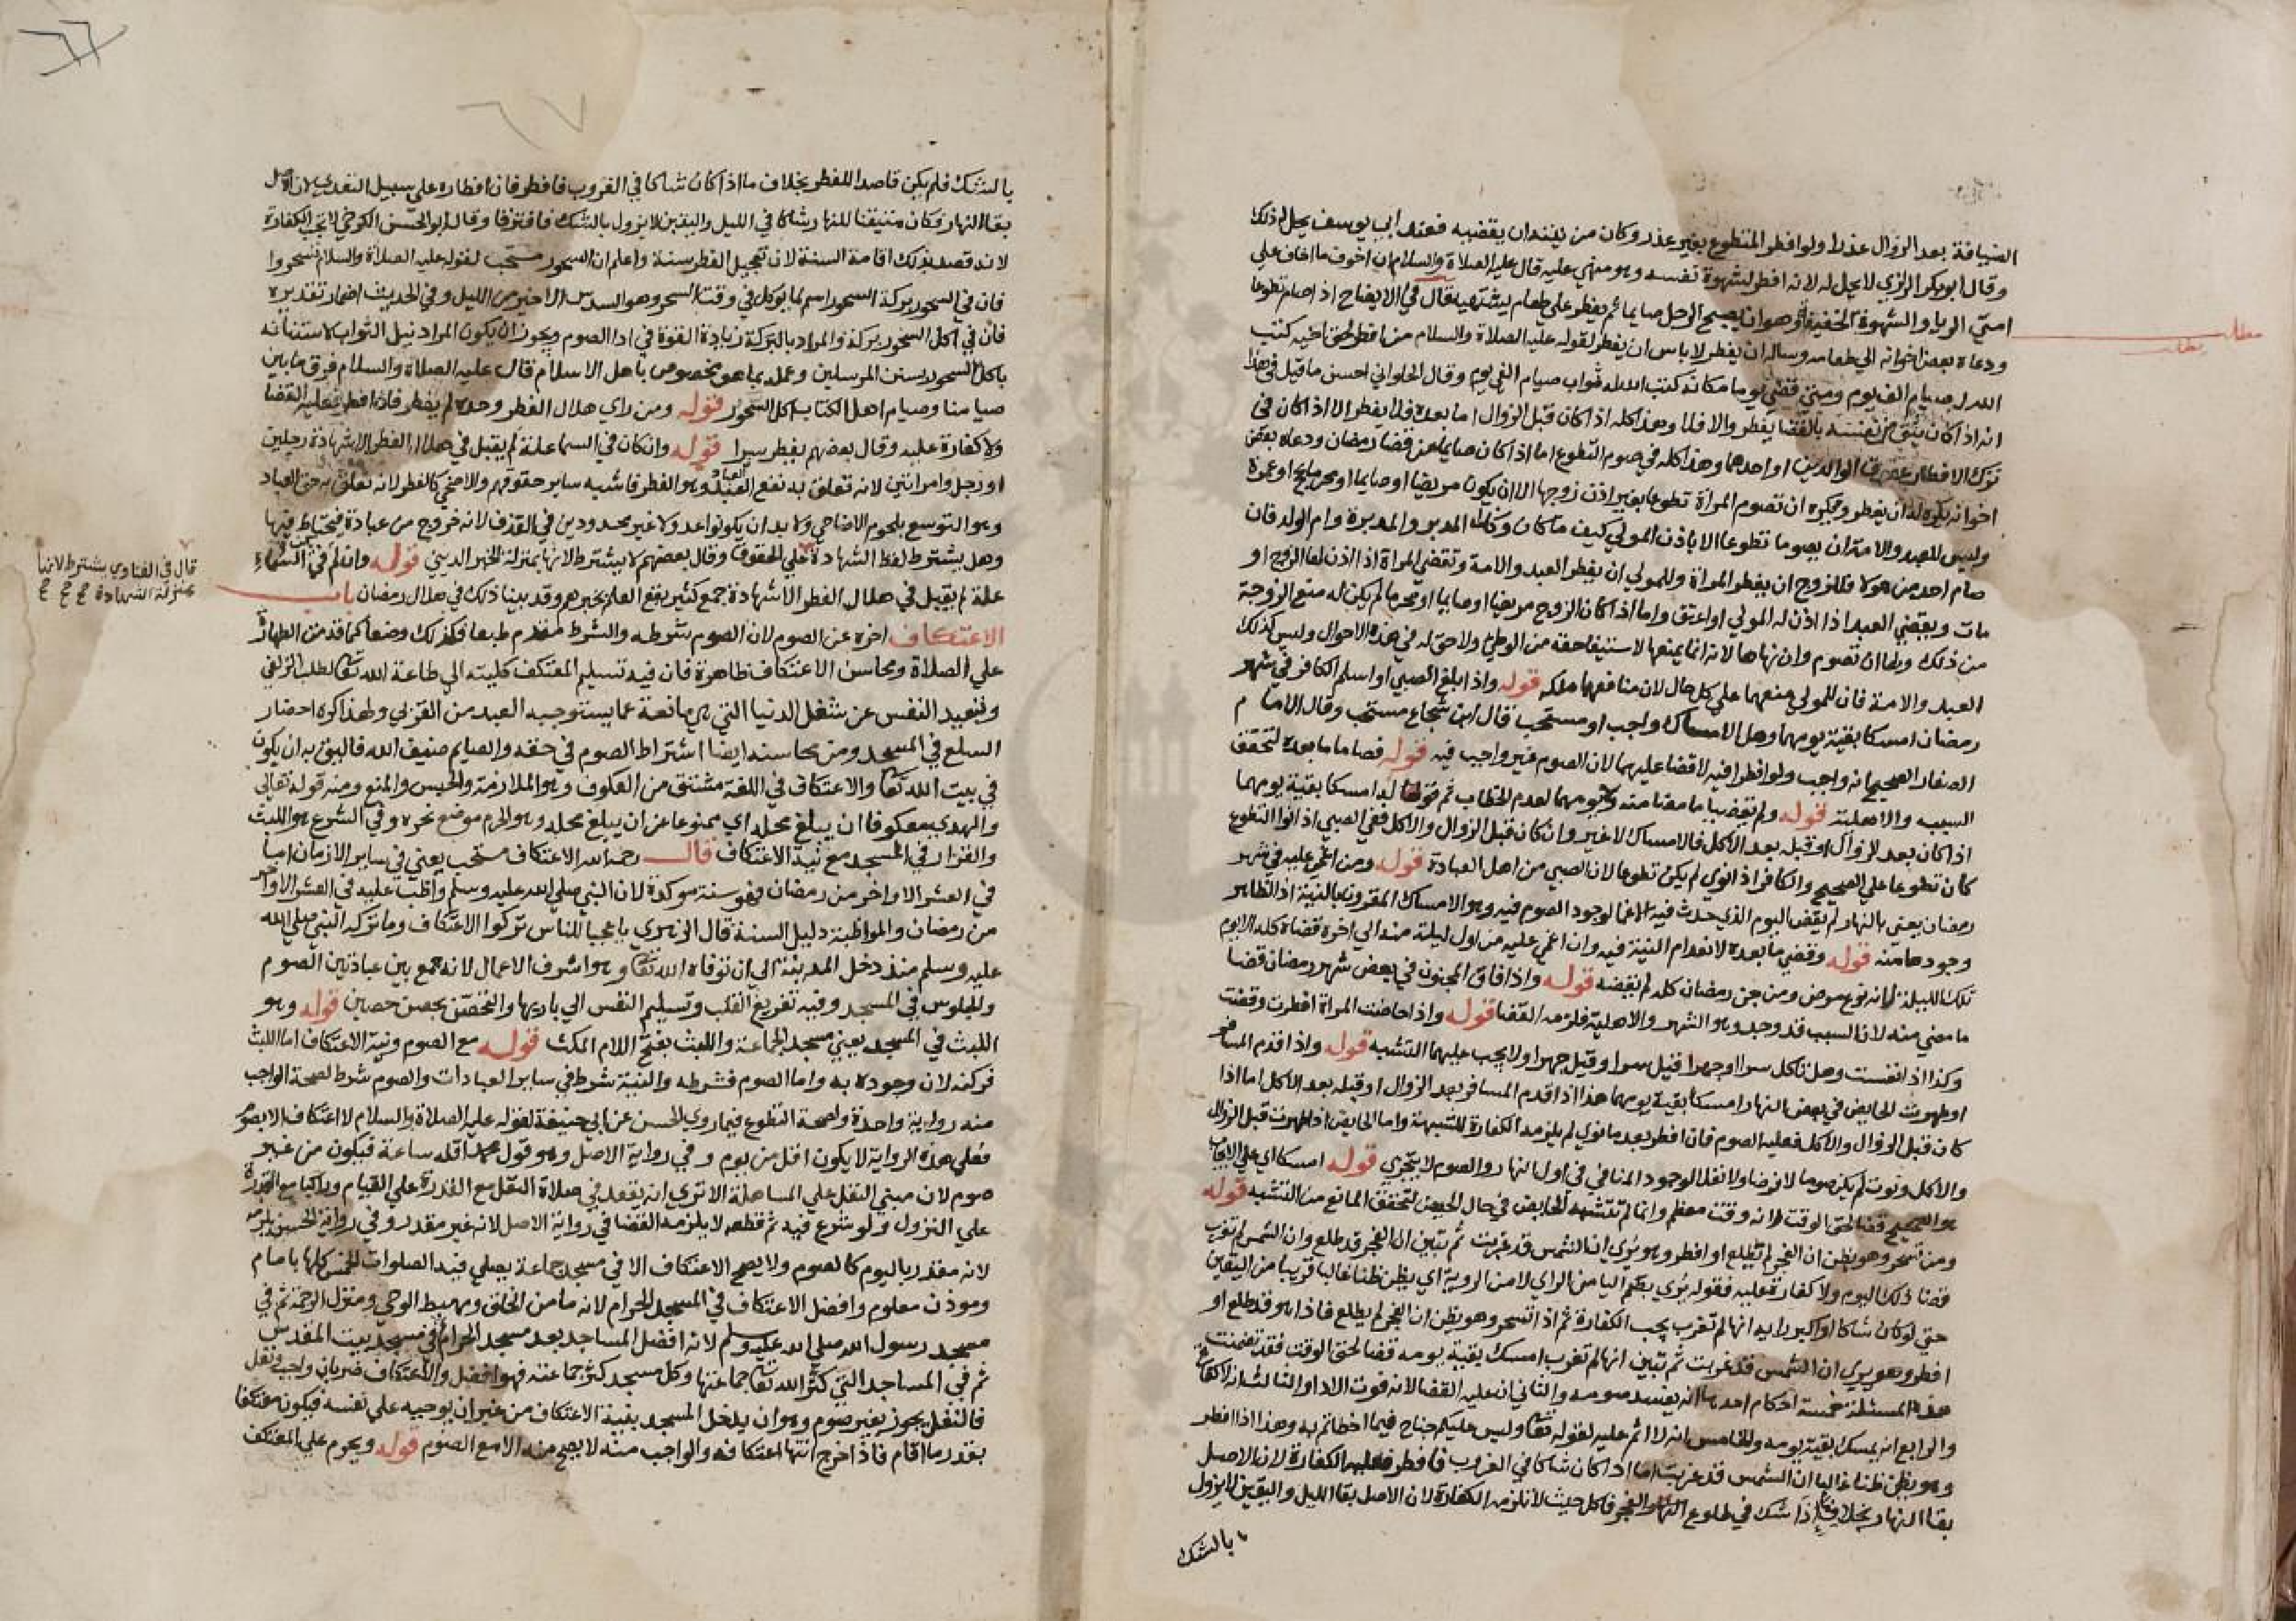 الضيافة بعد الزوال عذرا ولو افطر المتطوع بغير عذر وكان من نيته ان يقضيه فعند ابي يوسف يحل له ذلك
وقال ابو بكر الرازي لا يحل له لانه افطر لشهوة نفسه وهو منهي عليه قال عليه الصلاة والسلام ان اخوف ما اخاف على
امتي الريا والشهوة الخفية وهو ان يصبح الرجل صايما ثم يفطر على طعام يشتهيه قال في الايضاح اذا صام تطوعا
مطلب
ودعاه بعض اخوانه الى طعامه وساله ان يفطر لا باس ان يفطر لقوله عليه الصلاة والسلام من افطر لحق اخيه كتب
الله له صيام الف يوم ومتى قضى يوما مكانه كتب الله له ثواب صيام الفي يوم وقال الحلواني احسن ما قيل في هذا
انه اذا كان يثق من نفسه بالقضا يفطر والا فلا وهذا كله اذا كان قبل الزوال اما بعده فلا يفطر الا اذا كان في
ترك الافطار عقوق الوالدين او احدهما وهذا كله في صوم التطوع اما اذا كان صايما عن قضا رمضان ودعاه بعض
اخوانه يكره له ان يفطر ويكره ان تصوم المراة تطوعا بغير اذن زوجها الا ان يكون مريضا او صايما او محرما بحج او عمرة
وليس للعبد والامة ان يصوما تطوعا الا باذن المولى كيف ما كان وكذا المدبر والمدبرة وام الولد فان
صام احد من هولا فللزوج ان يفطر المراة وللمولى ان يفطر العبد والامة وتقضي المراة اذا اذن لها الزوج او
مات ويقضي العبد اذا اذن له المولى او اعتق واما اذا كان الزوج مريضا او صايما او محرما لم يكن له منع الزوجة
من ذلك ولها ان تصوم وان نهاها لانه انما يمنعها لاستيفا حقه من الوطئ ولا حق له في هذه الاحوال وليس كذلك
العبد والامة فان للمولى منعهما على كل حال لان منافعهما ملكه قوله واذا بلغ الصبي او اسلم الكافر في شهر
رمضان امسكا بقية يومهما وهل الامساك واجب او مستحب قال ابن شجاع مستحب وقال الامام
الصفار الصحيح انه واجب ولو افطرا فيه لا قضا عليهما لان الصوم غير واجب فيه قوله فصاما ما بعده لتحقق
السبب والاهلية قوله ولم يقضيا ما مضا منه ولا يومهما لعدم الخطاب ثم قوله امسكا بقية يومهما
اذا كان بعد الزوال او قبله بعد الاكل فالامساك لا غير وان كان قبل الزوال والاكل ففي الصبي اذا نوا التطوع
كان تطوعا على الصحيح والكافر اذا نوى لم يكن تطوعا لان الصبي من اهل العبادة قوله ومن اغمي عليه في شهر
رمضان يعني بالنهار لم يقض اليوم الذي حدث فيه الاغما لوجود الصوم فيه وهو الامساك المقرون بالنية اذ الظاهر
وجودها منه قوله وقضى ما بعده لانعدام النية فيه وان اغمي عليه من اول ليلة منه الى اخره قضاه كله الا يوم
تلك الليلة لانه نوع مرض ومن جن رمضان كله لم يقضه قوله واذا افاق المجنون في بعض شهر رمضان قضا
ما مضى منه لان السبب قد وجد وهو الشهر والاهلية فلزمه القضا قوله واذا حاضت المراة افطرت وقضت
وكذا اذا نفست وهل تاكل سرا او جهرا قيل سرا وقيل جهرا ولا يجب عليهما التشبه قوله واذا قدم المسافر
او طهرت الحايض في بعض النهار امسكا بقية يومهما هذا اذا قدم المسافر بعد الزوال او قبله بعد الاكل اما اذا
كان قبل الزوال والاكل فعليه الصوم فان افطر بعد ما نوى لم يلزمه الكفارة للشبهة واما الحايض اذا طهرت قبل الزوال
والاكل ونوت لم يكن صوما لا فرضا ولا نفلا لوجود المنافي في اول النهار والصوم لا يتجزى قوله امسكا اي على الايجاب
هو الصحيح قضا لحق الوقت لانه وقت معظم وانما لم تتشبه الحايض في حال الحيض لتحقق المانع من التشبه قوله
ومن تسحر وهو يظن ان الفجر لم يطلع او افطر وهو يرى ان الشمس قد غربت ثم تبين ان الفجر قد طلع وان الشمس لم تغرب
قضا ذلك اليوم ولا كفارة عليه فقوله يرى بضم اليا من الراي لا من الروية اي يظن ظنا غالبا قريبا من اليقين
حتى لو كان شاكا او اكبر رايه انها لم تغرب يجب الكفارة ثم اذا تسحر وهو يظن ان الفجر لم يطلع فاذا هو قد طلع او
افطر وهو يرى ان الشمس قد غربت ثم تبين انها لم تغرب امسك بقية يومه قضا لحق الوقت فقد تضمنت
هذه المسئلة خمسة احكام احدها انه يفسد صومه والثاني ان عليه القضا لانه فوت الادا والثالث انه لا كفارة
والرابع انه يمسك بقية يومه والخامس انه لا اثم عليه لقوله تعا وليس عليكم جناح فيما اخطاتم به وهذا اذا افطر
وهو يظن ظنا غالبا ان الشمس قد غربت اما اذا كان شاكا في الغروب فافطر فعليه الكفارة لان الاصل
بقا النهار بخلاف ما اذا شك في طلوع الفجر فاكل حيث لا تلزمه الكفارة لان الاصل بقا الليل واليقين لا يزول
بالشك
٦٦
٦٧
بالشك فلم يكن قاصدا للفطر بخلاف ما اذا كان شاكا في الغروب فافطر فان افطاره على سبيل التعدي لان الاصل
بقا النهار فكان متيقنا للنهار شاكا في الليل واليقين لا يزول بالشك فافترقا وقال ابو الحسن الكرخي لا تجب الكفارة
لانه قصد بذلك اقامة السنة لان تعجيل الفطر سنة واعلم ان السحور مستحب لقوله عليه الصلاة والسلام تسحروا
فان في السحور بركة السحور اسم لما يوكل في وقت السحر وهو السدس الاخير من الليل وفي الحديث اضمار تقديره
فان في اكل السحور بركة والمراد بالبركة زيادة القوة في ادا الصوم ويجوز ان يكون المراد نيل الثواب لاستنانه
باكل السحور بسنن المرسلين وعمله بما هو مخصوص باهل الاسلام قال عليه الصلاة والسلام فرق ما بين
صيامنا وصيام اهل الكتاب اكل السحور قوله ومن راى هلال الفطر وحده لم يفطر فاذا افطر فعليه القضا
ولا كفارة عليه وقال بعضهم يفطر سرا قوله وان كان في السما علة لم يقبل في هلال الفطر الا شهادة رجلين
او رجل وامراتين لانه تعلق به نفع العباد وهو الفطر فاشبه ساير حقوقهم والاضحى كالفطر لانه تعلق به حق العباد
وهو التوسع بلحوم الاضاحي ولا بد ان يكونوا عدولا غير محدودين في القذف لانه خروج من عبادة فيحتاط فيها
وهل يشترط لفظ الشهادة على الحقوق وقال بعضهم لا يشترط لانها بمنزلة الخبر الديني قوله وان لم يكن في السماء
قال في الفتاوي يشترط لانها
بمنزلة الشهادة
علة لم يقبل في هلال الفطر الا شهادة جمع كثير يقع العلم بخبرهم وقد بينا ذلك في هلال رمضان باب
الاعتكاف اخره عن الصوم لان الصوم شرطه والشرط مقدم طبعا فكذلك وضعا كما قدمت الطهارة
على الصلاة ومحاسن الاعتكاف ظاهرة فان فيه تسليم المعتكف كليته الى طاعة الله تعا لطلب الزلفى
وتبعيد النفس عن شغل الدنيا التي هي مانعة عما يستوجبه العبد من القربى ولهذا كره احضار
السلع في المسجد ومن محاسنه ايضا اشتراط الصوم في حقه والصايم ضيف الله فاليق به ان يكون
في بيت الله تعا والاعتكاف في اللغة مشتق من العكوف وهو الملازمة والحبس والمنع ومنه قوله تعالى
والهدي معكوفا ان يبلغ محله اي ممنوعا عن ان يبلغ محله وهو الحرم موضع نحره وفي الشرع هو اللبث
والقرار في المسجد مع نية الاعتكاف قال رحمه الله الاعتكاف مستحب يعني في ساير الازمان اما
في العشر الاواخر من رمضان فهو سنة موكدة لان النبي صلى الله عليه وسلم واظب عليه في العشر الاواخر
من رمضان والمواظبة دليل السنة قال الزهري يا عجبا للناس تركوا الاعتكاف وما تركه النبي صلى الله
عليه وسلم منذ دخل المدينة الى ان توفاه الله تعا وهو اشرف الاعمال لانه جمع بين عبادتين الصوم
والجلوس في المسجد وفيه تفريغ القلب وتسليم النفس الى باريها والتحصن بحصن حصين قوله وهو
اللبث في المسجد يعني مسجد الجماعة واللبث بفتح اللام المكث قوله مع الصوم ونية الاعتكاف اما اللبث
فركنه لان وجوده به واما الصوم فشرطه والنية شرط في ساير العبادات والصوم شرط لصحة الواجب
منه رواية واحدة ولصحة التطوع فيما روى الحسن عن ابي حنيفة لقوله عليه الصلاة والسلام لا اعتكاف الا بصوم
فعلى هذه الرواية لا يكون اقل من يوم وفي رواية الاصل وهو قول محمد اقله ساعة فيكون من غير
صوم لان مبنى النفل على المساهلة الا ترى انه يقعد في صلاة النفل مع القدرة على القيام وراكبا مع القدرة
على النزول ولو شرع فيه ثم قطعه لا يلزمه القضا في رواية الاصل لانه غير مقدر وفي رواية الحسن يلزمه
لانه مقدر باليوم كالصوم ولا يصح الاعتكاف الا في مسجد جماعة يصلى فيه الصلوات الخمس كلها بامام
وموذن معلوم وافضل الاعتكاف في المسجد الحرام لانه مامن الخلق ومهبط الوحي ومنزل الرحمة ثم في
مسجد رسول الله صلى الله عليه وسلم لانه افضل المساجد بعد مسجد الحرام ثم في مسجد بيت المقدس
ثم في المساجد التي كثر الله تعا جماعتها وكل مسجد كثر جماعته فهو افضل والاعتكاف ضربان واجب ونفل
فالنفل يجوز بغير صوم وهو ان يدخل المسجد بنية الاعتكاف من غير ان يوجبه على نفسه فيكون معتكفا
بقدر ما اقام فاذا خرج انتها اعتكافه والواجب منه لا يصح منه الا مع الصوم قوله ويحرم على المعتكف